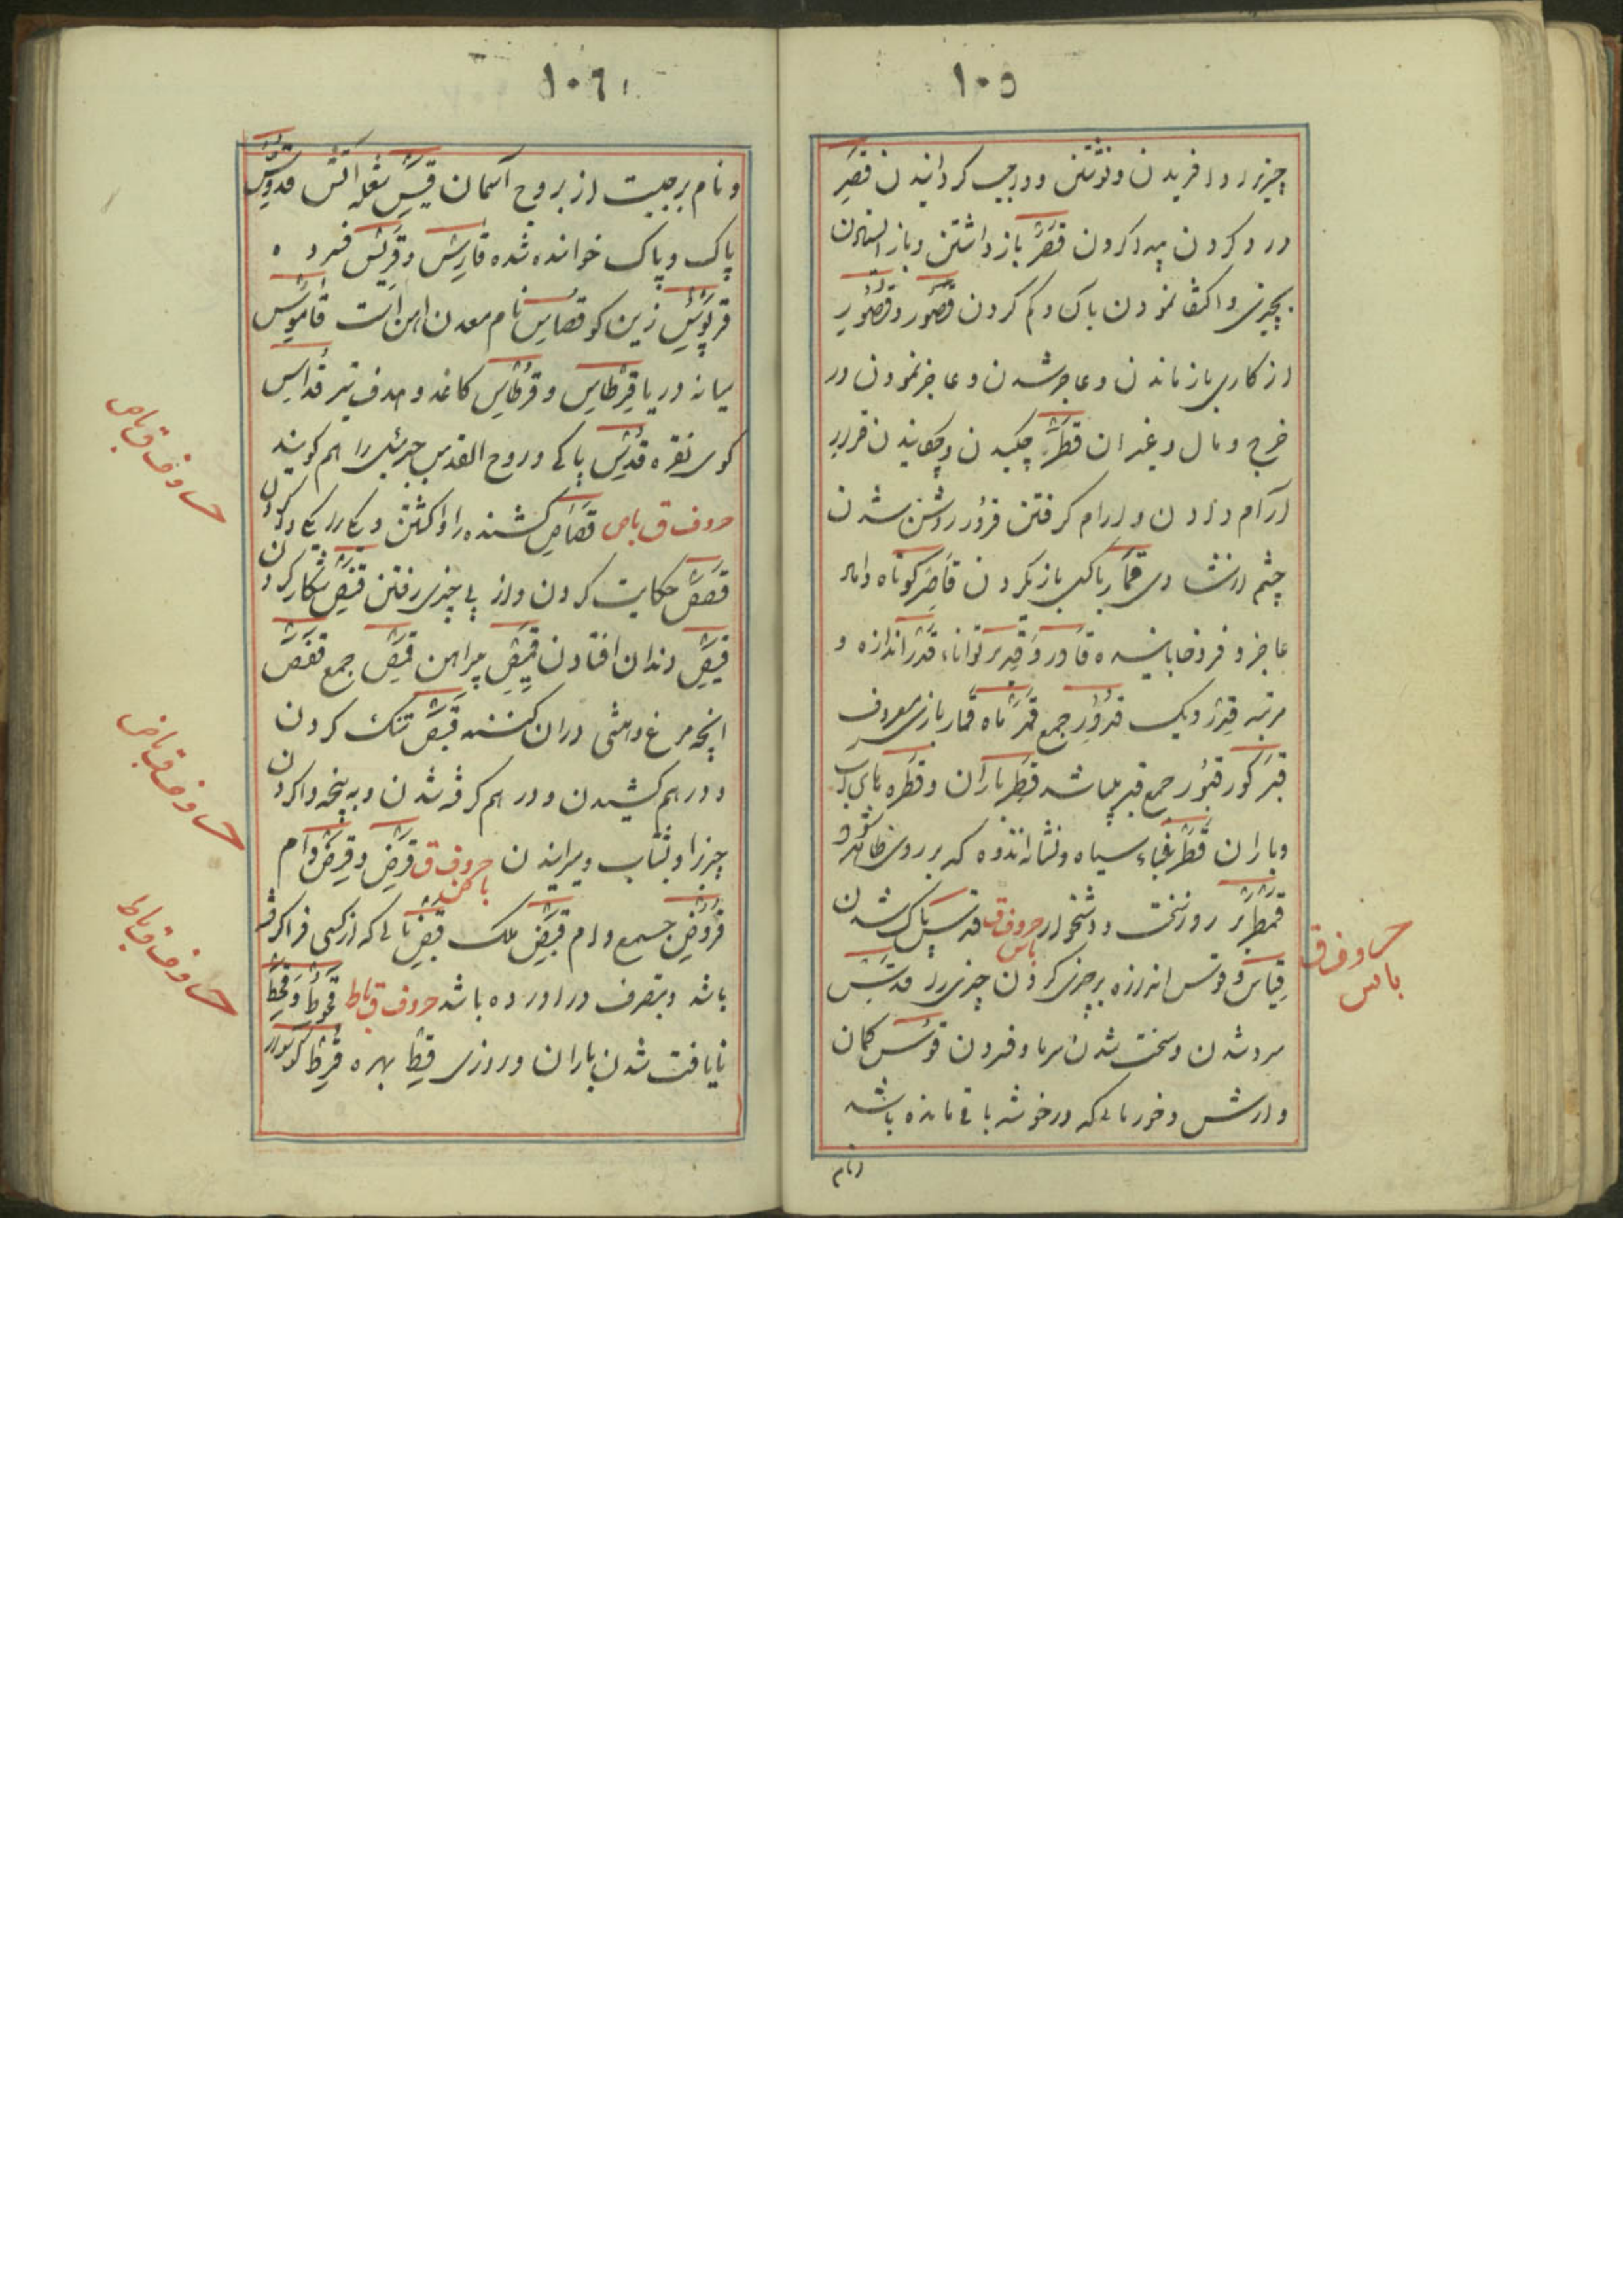 ۱۰۵
چیزی را و افریدن و نوشتن و واجب گردانیدن قصر
درد کردن پیدا کردن قصر باز داشتن و باز ایستادن
بچیزی و اکتفا نمودن بآن و کم کردن قصور و قصور
از کاری باز ماندن و عاجز شدن و عاجز نمودن در
خرج و مال و غیر ان قطر چکیدن و چکانیدن قرار
آرام دادن و ارام گرفتن قرور روشن شدن
چشم از شادی قمار باکسی بازی کردن قاصر کوتاه
عاجز و فرو قادر و قدیر توانا قدر اندازه و
مرتبه قدر دیک قدور جمع قمر ماه قمار بازی معروف
قبر کور قبور جمع قبر باشد قطر باران و قطره های آب
و باران قطر سیاه و نشانه اندوه که بر روی ظاهر شود
قمطریر روز سخت و دشخوار حروف ق باس قدس پاک شدن
قیاس و قوس اندازه بر چیزی کردن چیزی را
سرد شدن و سخت شدن سرما و فسردن قوس کمان
و ارش و خرمائی که در خوشه باقی مانده باشد
و نام
حروف ق
باس
۱۰۶
و نام برجیست از بروج آسمان قبس شعله آتش قدوس
پاک و پاک خوانده شده قارس و قریس فسرده
قربوس زین کو قساس نام معدن اهن است قاموس
میانه دریا قرطاس و قرطاس کاغذ و هدف تیر قداس
کوی نقره قدس پاکی و روح القدس جبرئیل را هم کویند
حروف ق باص قصاص کشنده را واکشتن و یکی را یکی
قصص حکایت کردن و از پی چیزی رفتن قنص شکار کردن
قیص دندان افتادن قمیص پیراهن قمص جمع قفص
انچه مرغ وحشی دران کنند قبض تنک کردن
و درهم کشیدن و درهم گرفته شدن و به پنجه واکردن
چیزی را و بشتاب و میرانیدن حروف ق باض قرض و قرض وام
قروض جمع وام قبض ملک قبض مالی که از کسی فرا گرفته
باشد و بتصرف در اورده باشد حروف ق باط قحوط و قحط
نایافت شدن باران و روزی قط بهره قرط کوشوار
حروف ق باص
حروف ق باض
حروف ق باط